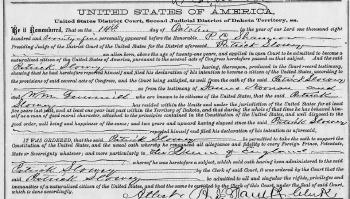 UNITED STATES OF AMERICA,
United States District Court, Second Judicial District of Dakota Territory, ss.
Be it Remembered, That on the 14th day of October in the year of our Lord one thousand eight
hundred and personally appeared before the Honorable P. C.
Presiding Judge of the District Court of the United States for the District aforesaid, Patrick
an alien born, above the age of twenty-one years, and applied in open Court to be admitted to become a
naturalized citizen of the United States of America, pursuant to the several acts of Congress heretofore passed on that subject. And
the said Patrick having, thereupon, produced to the Court record testimony,
showing that he had heretofore reported himself and filed his declaration of his intention to become a citizen of the United States, according to
the provisions of said several acts of Congress, and the Court being satisfied, as well from the oath of the said Patrick
as from the testimony of
and Wm. who that the said Patrick
has resided within the limits and under the jurisdiction of the United States for at least
five years last past, and at least one year last past within the Territory of Dakota, and that during the whole of that time he has behaved him-
self as a man of good moral character, attached to the principles contained in the Constitution of the United States, and well disposed to the
good order, well being and happiness of the same; and two years and upward having elapsed since the said Patrick
reported himself and filed his declaration of his intention as aforesaid,
IT WAS ORDERED, that the said Patrick be permitted to take the oath to support the
Constitution of the United States, and the usual oath whereby he renounced all allegiance and fidelity to every Foreign Prince, Potentate,
State or Sovereignty whatever; and more particularly to Queen of England
whereof he was heretofore a subject, which said oath having been administered to the said
Patrick by the Clerk of said Court, it was ordered by the Court that the
said Patrick be admitted to all and singular the rights, privileges and
immunities of a naturalized citizen of the United States, and that the same be certified by the Clerk of this Court, under the seal of said Court,
which is done accordingly.
Attest Clerk